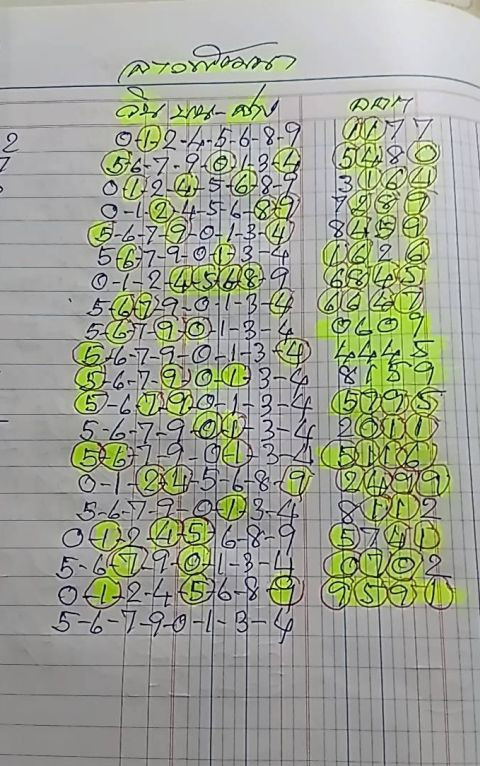 ลาวพัฒนา
วิน บน-ล่าง ออก
0-1-2-4-5-6-8-9 1177
5-6-7-9-0-1-3-4 5480
0-1-2-4-5-6-8-9 3164
0-1-2-4-5-6-8-9 7289
5-6-7-9-0-1-3-4 8459
5-6-7-9-0-1-3-4 1626
0-1-2-4-5-6-8-9 6845
5-6-7-9-0-1-3-4 6647
5-6-7-9-0-1-3-4 0609
5-6-7-9-0-1-3-4 4445
5-6-7-9-0-1-3-4 8159
5-6-7-9-0-1-3-4 5995
5-6-7-9-0-1-3-4 2011
5-6-7-9-0-1-3-4 5161
0-1-2-4-5-6-8-9 2499
5-6-7-9-0-1-3-4 8112
0-1-2-4-5-6-8-9 5741
5-6-7-9-0-1-3-4 0702
0-1-2-4-5-6-8-9 9591
5-6-7-9-0-1-3-4